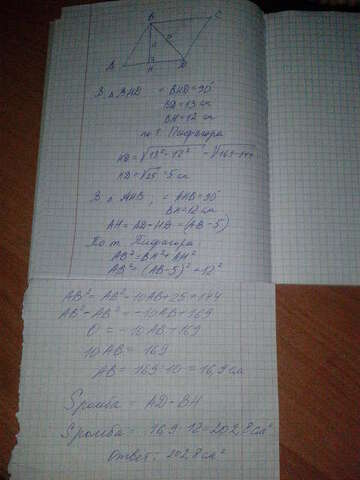 B C
A H D
В △ BHD ∠ BHD = 90°
BD = 13 см
BH = 12 см
по т. Пифагора
HD = √13² - 12² = √169 - 144
HD = √25 = 5 см
В △ AHB, ∠ AHB = 90°
BH = 12 см
AH = AD - HD = (AB - 5)
По т. Пифагора
AB² = BH² + AH²
AB² = (AB - 5)² + 12²
AB² = AB² - 10AB + 25 + 144
AB² - AB² = -10AB + 169
0 = -10AB + 169
10AB = 169
AB = 169 : 10 = 16,9 см
Sромба = AD · BH
Sромба = 16,9 · 12 = 202,8 см²
Ответ: 202,8 см²